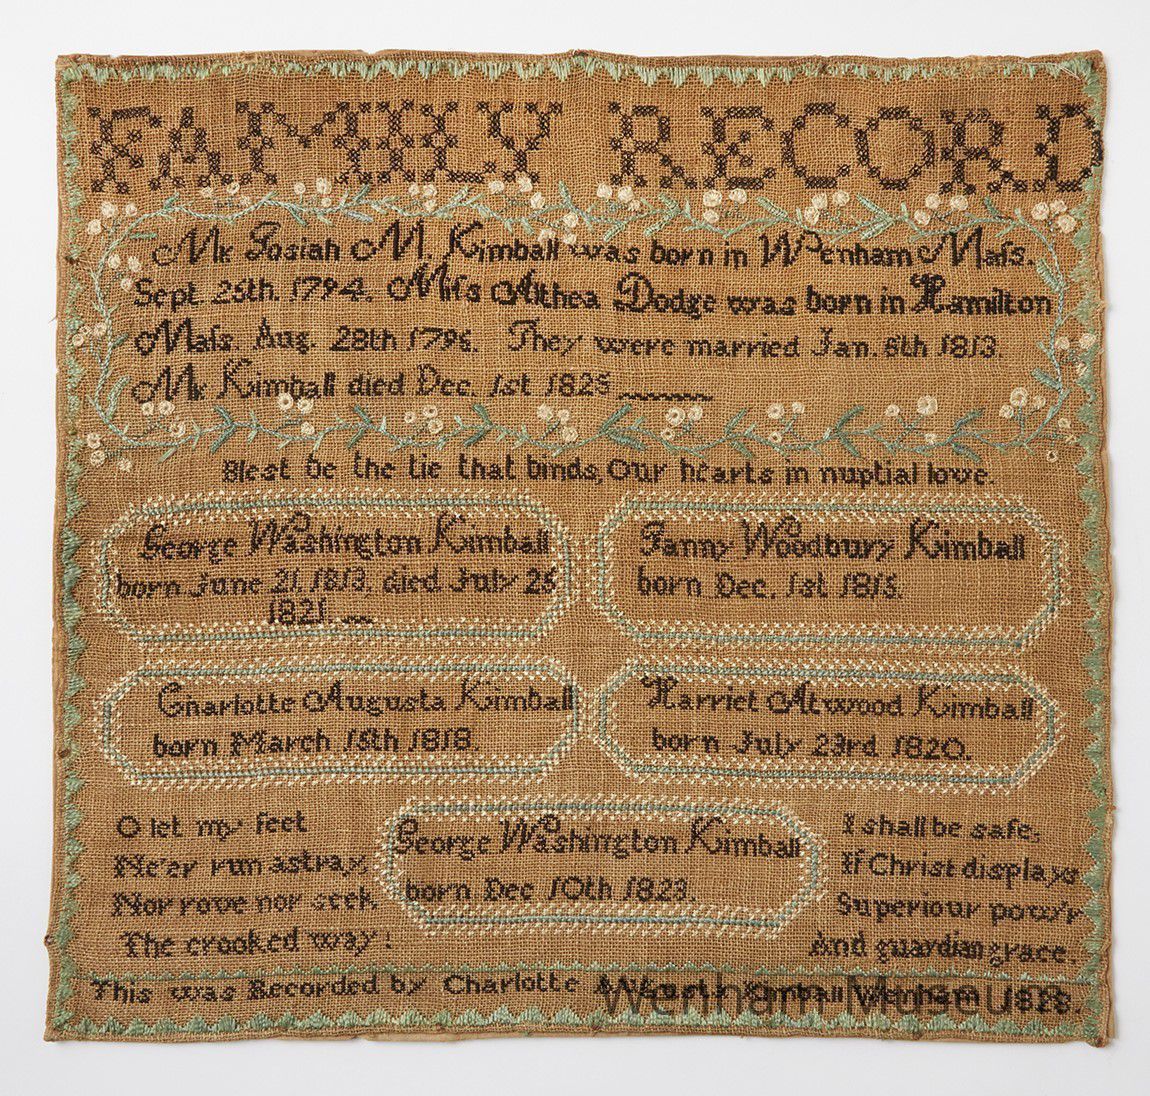 FAMILY RECORD
Mr Josiah M. Kimball was born in Wenham Mass.
Sept. 25th. 1794. Miss Althea Dodge was born in Hamilton
Mass. Aug. 28th 1796. They were married Jan. 6th 1813.
Mr Kimball died Dec. 1st 1825
Blest be the tie that binds, Our hearts in nuptial love.
George Washington Kimball
born June 21, 1813, died July 25
1821.
Fanny Woodbury Kimball
born Dec. 1st 1815.
Charlotte Augusta Kimball
born March 15th 1818.
Harriet Atwood Kimball
born July 23rd 1820.
O let my feet
Ne'er run astray,
Nor rove nor seek,
The crooked way!
George Washington Kimball
born Dec 10th 1823.
I shall be safe,
If Christ displays
Superiour pow'r
And guardian grace.
This was Recorded by Charlotte Kimball Wenham 1828.
Wenham Museum